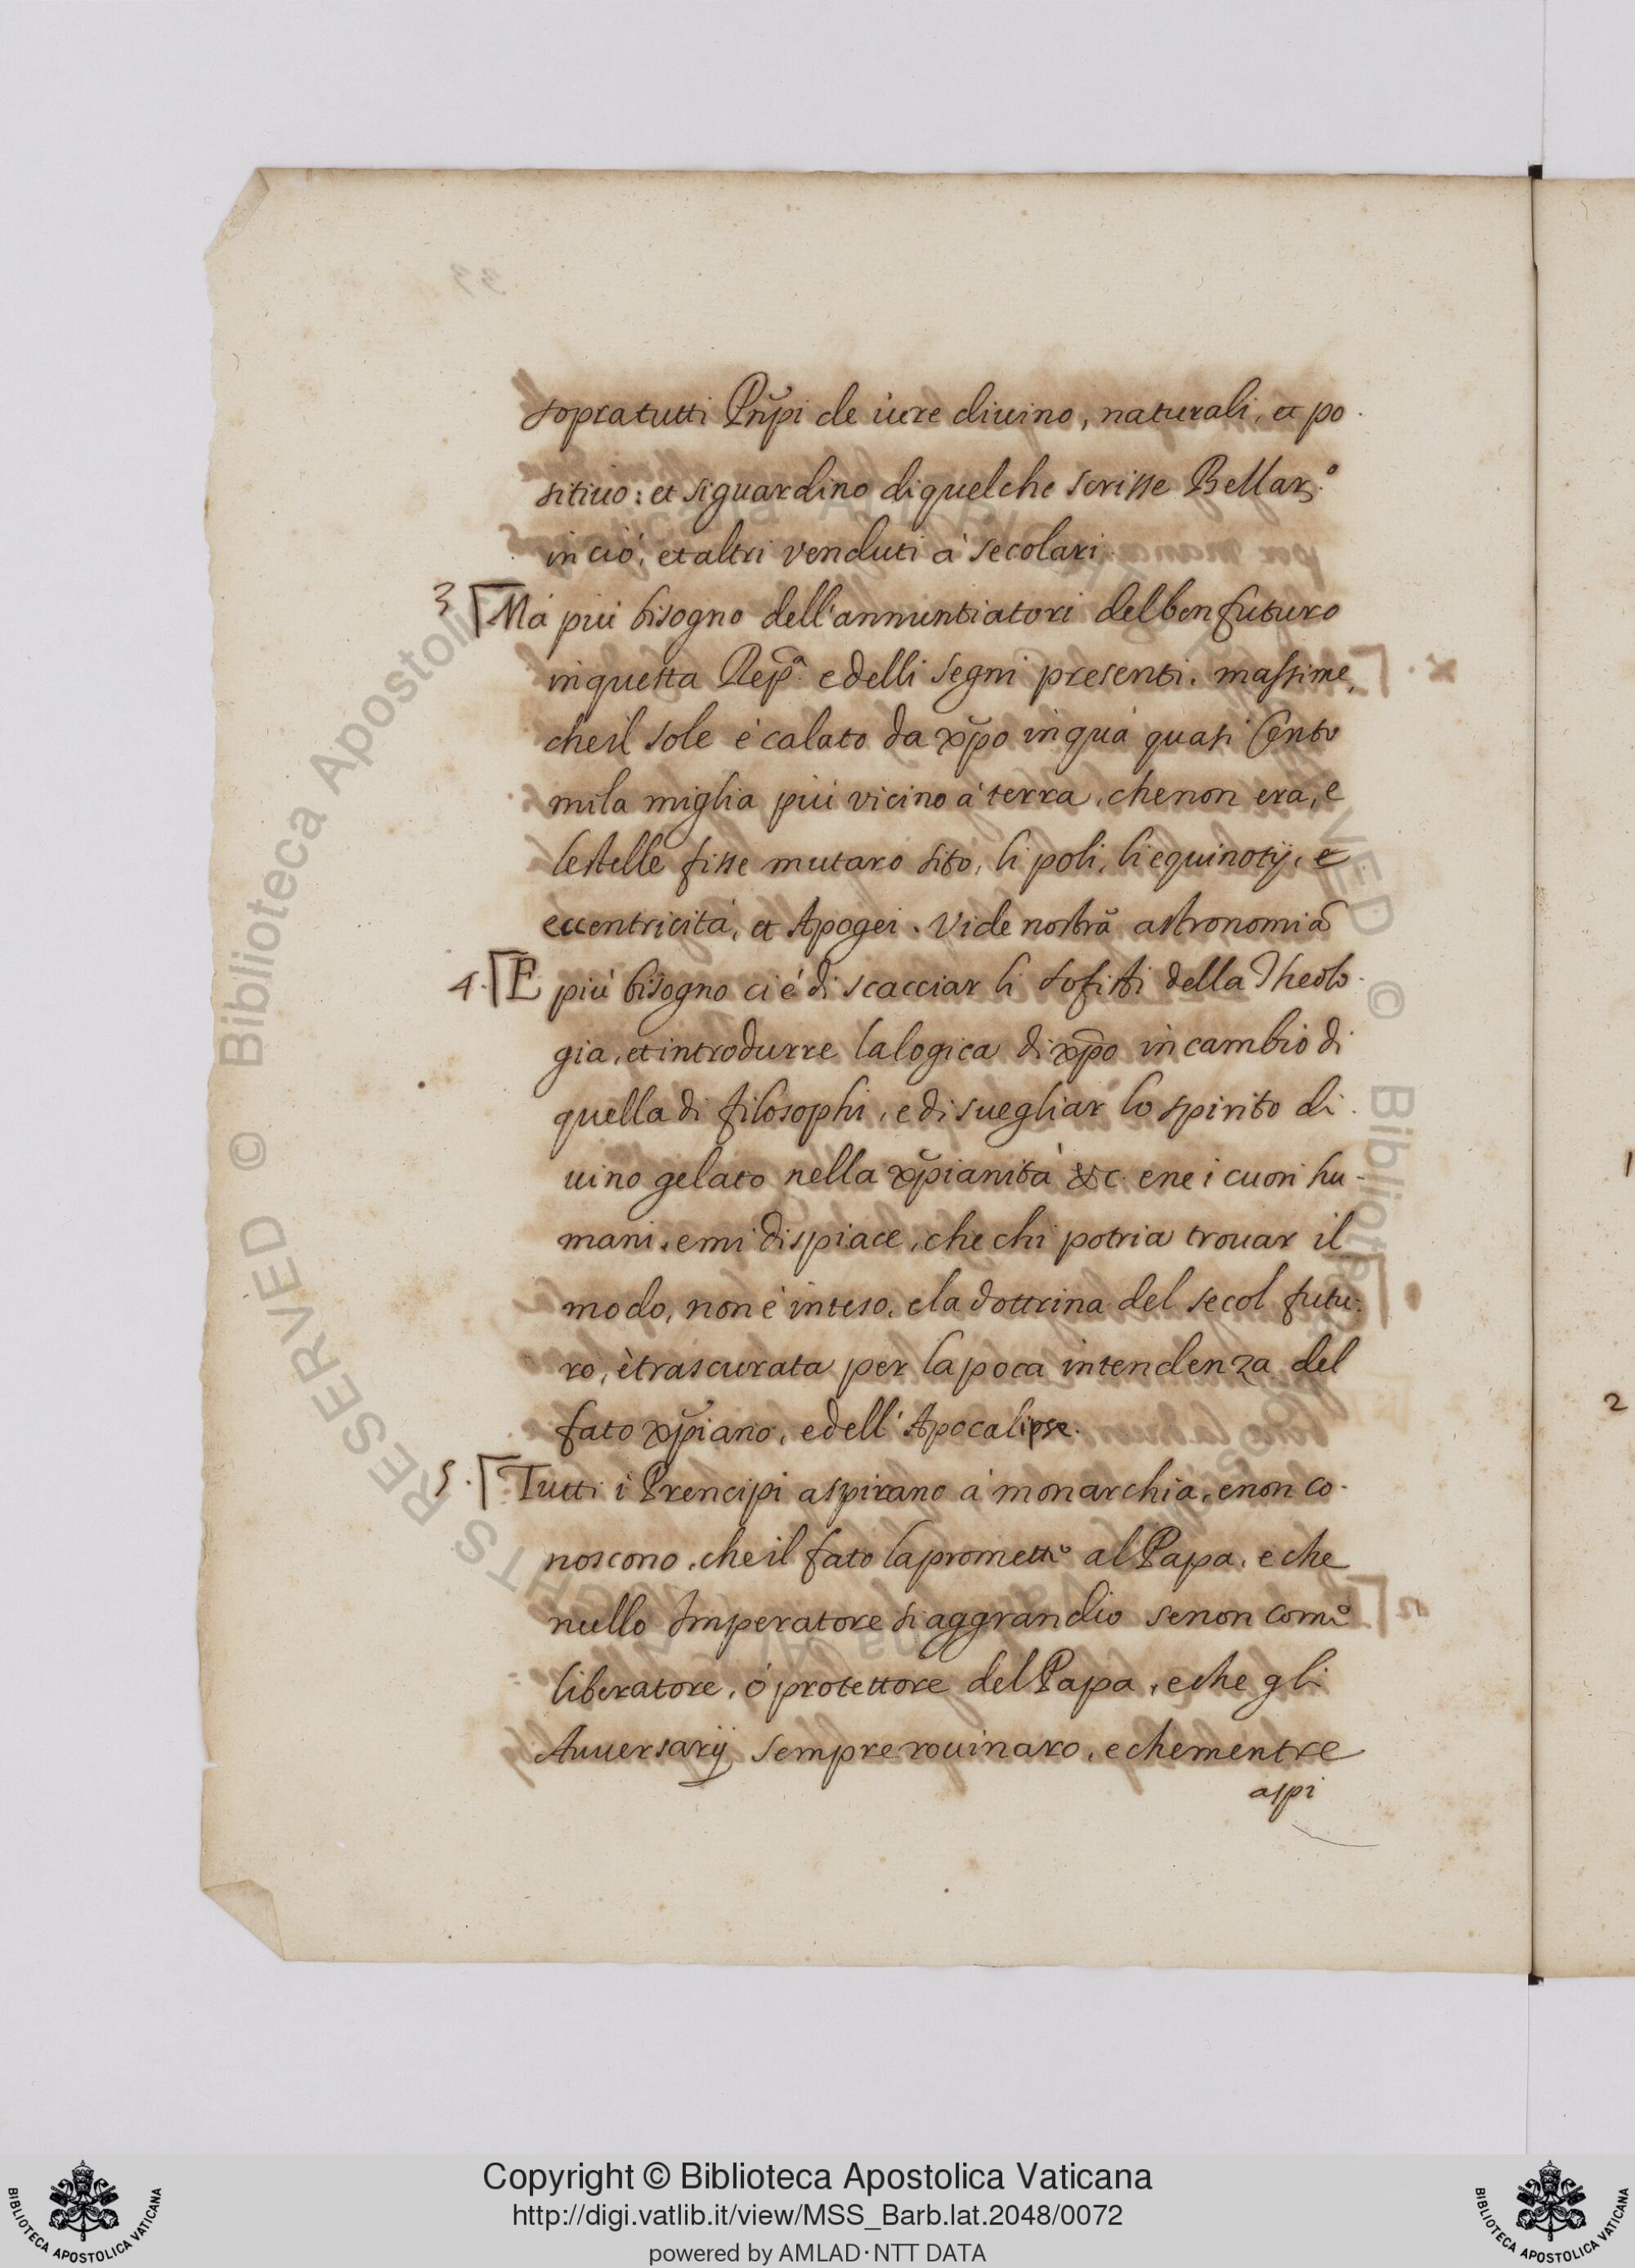 sopra tutti Prñpi de iure diuino, naturali, et po
sitiuo: et si guardino di quel che scrisse Bellar.º
in ciò, et altri venduti à secolari.
3 Má più bisogno dell'annuntiatori del ben futuro
in questa Rep.ª e delli segni presenti. massime,
che il sole è calato da xp̃o in quà quasi Cento
mila miglia più vicino à terra, che non era, e
le stelle fisse mutaro sito, li poli, li equinotij, e
eccentricità, et Apogei. Vide nostrã astronomiã
4. E più bisogno ci è di scacciar li sofisti della Theolo
gia, et introdurre la logica di xp̃o in cambio di
quella di filosophi, e di suegliar lo spirito di
uino gelato nella xp̃ianità &c. e ne i cuori hu-
mani. e mi dispiace, che chi potria trouar il
modo, non è inteso, e la dottrina del secol futu-
ro, è trascurata per la poca intendenza del
fato xp̃iano, e dell'Apocalipse.
5. Tutti i Prencipi aspirano à monarchia, e non co-
noscono, che il fato la promette al Papa, e che
nullo Imperatore si aggrandio se non come
liberatore, ó protettore del Papa, e che gli
Auuersarij sempre rouinaro, e che mentre
aspi
1
2
37
© Biblioteca Apostolica Vaticana ALL RIGHTS RESERVED
Copyright © Biblioteca Apostolica Vaticana
http://digi.vatlib.it/view/MSS_Barb.lat.2048/0072
powered by AMLAD·NTT DATA
BIBLIOTECA APOSTOLICA VATICANA
BIBLIOTECA APOSTOLICA VATICANA